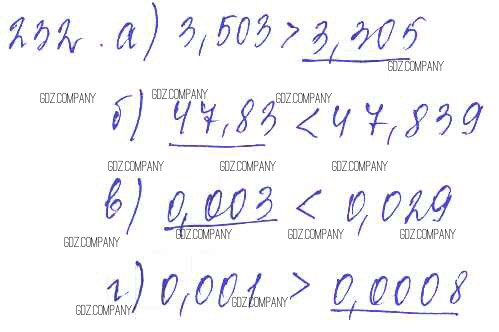 232. а) 3,503 > 3,305
GDZ.COMPANY
GDZ.COMPANY GDZ.COMPANY GDZ.COMPANY
б) 47,83 < 47,839
GDZ.COMPANY GDZ.COMPANY GDZ.COMPANY
в) 0,003 < 0,029
GDZ.COMPANY GDZ.COMPANY GDZ.COMPANY GDZ.COMPANY
г) 0,001 > 0,0008
GDZ.COMPANY GDZ.COMPANY